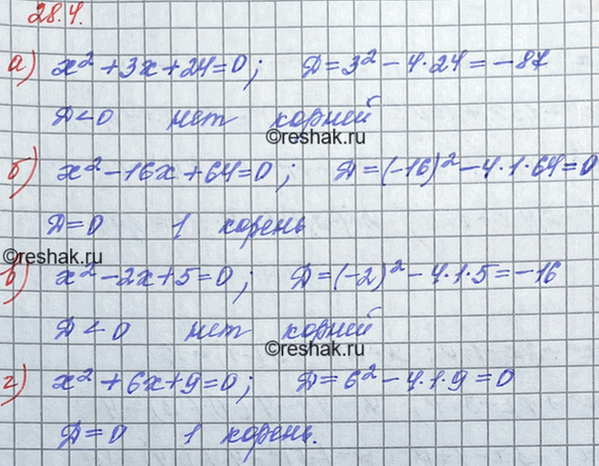 28.4.
а) x² + 3x + 24 = 0; D = 3² − 4·24 = −87
D < 0 нет корней
©reshak.ru
б) x² − 16x + 64 = 0; D = (−16)² − 4·1·64 = 0
D = 0 1 корень
©reshak.ru
в) x² − 2x + 5 = 0; D = (−2)² − 4·1·5 = −16
D < 0 нет корней
©reshak.ru
г) x² + 6x + 9 = 0; D = 6² − 4·1·9 = 0
D = 0 1 корень.